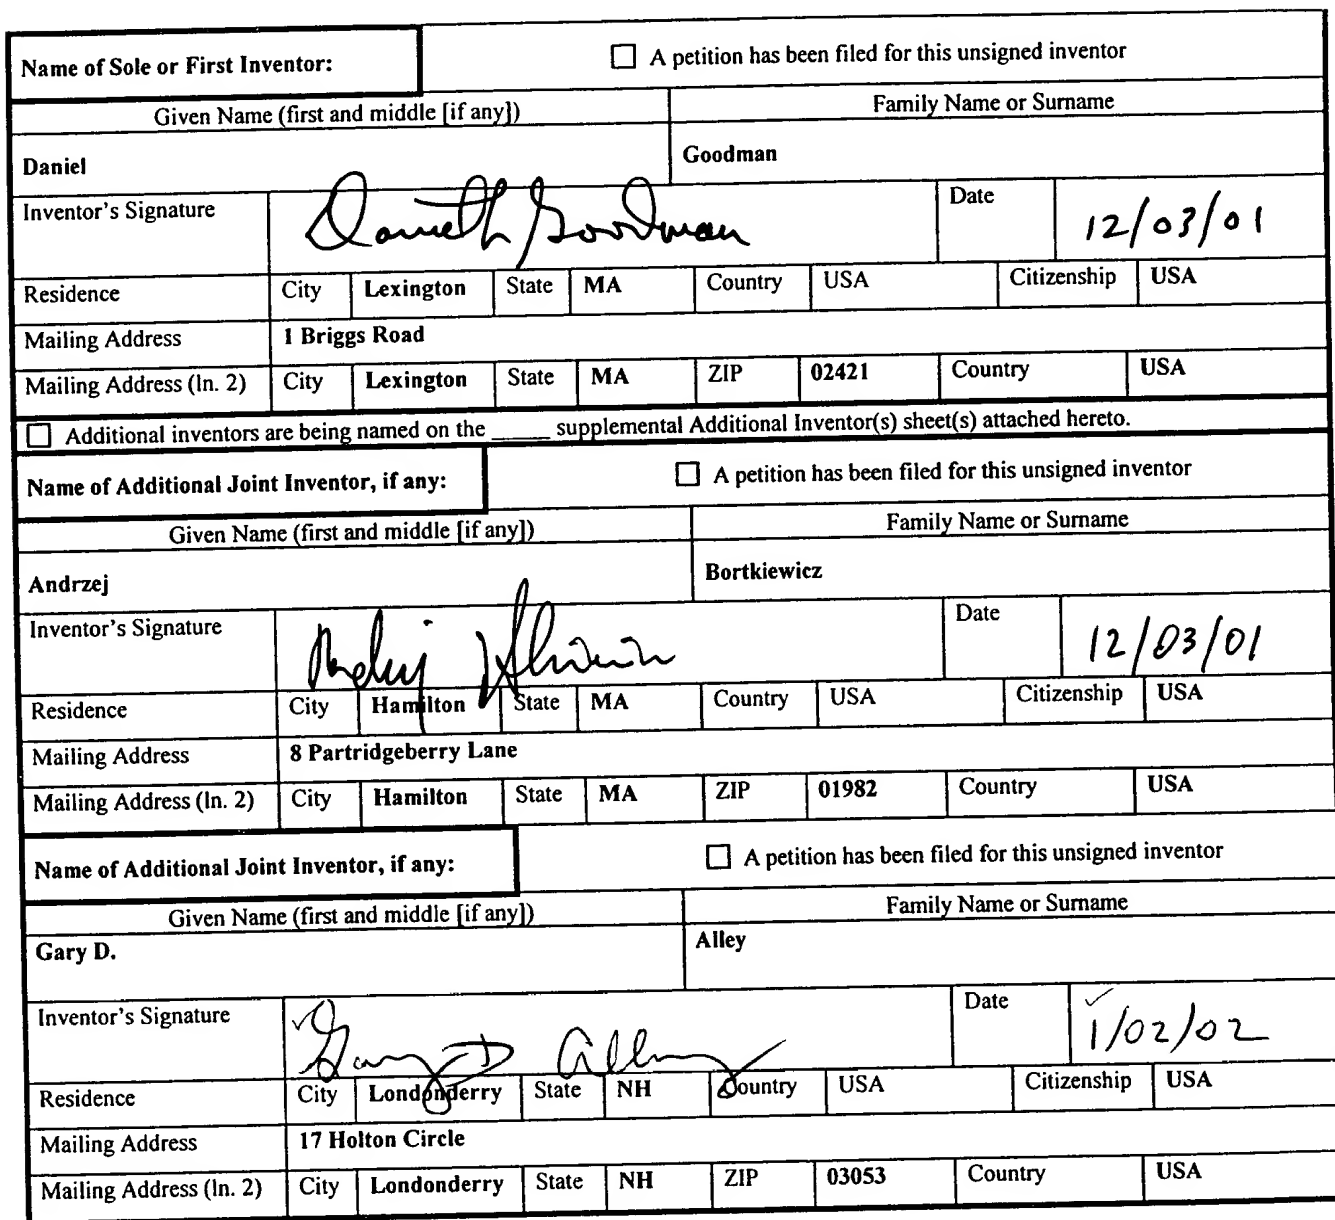 Name of Sole or First Inventor: ☐ A petition has been filed for this unsigned inventor
Given Name (first and middle [if any]) Family Name or Surname
Daniel Goodman
Inventor's Signature Daniel Goodman Date 12/03/01
Residence City Lexington State MA Country USA Citizenship USA
Mailing Address 1 Briggs Road
Mailing Address (ln. 2) City Lexington State MA ZIP 02421 Country USA
☐ Additional inventors are being named on the _____ supplemental Additional Inventor(s) sheet(s) attached hereto.
Name of Additional Joint Inventor, if any: ☐ A petition has been filed for this unsigned inventor
Given Name (first and middle [if any]) Family Name or Surname
Andrzej Bortkiewicz
Inventor's Signature Date 12/03/01
Residence City Hamilton State MA Country USA Citizenship USA
Mailing Address 8 Partridgeberry Lane
Mailing Address (ln. 2) City Hamilton State MA ZIP 01982 Country USA
Name of Additional Joint Inventor, if any: ☐ A petition has been filed for this unsigned inventor
Given Name (first and middle [if any]) Family Name or Surname
Gary D. Alley
Inventor's Signature Gary D Alley Date 1/02/02
Residence City Londonderry State NH Country USA Citizenship USA
Mailing Address 17 Holton Circle
Mailing Address (ln. 2) City Londonderry State NH ZIP 03053 Country USA